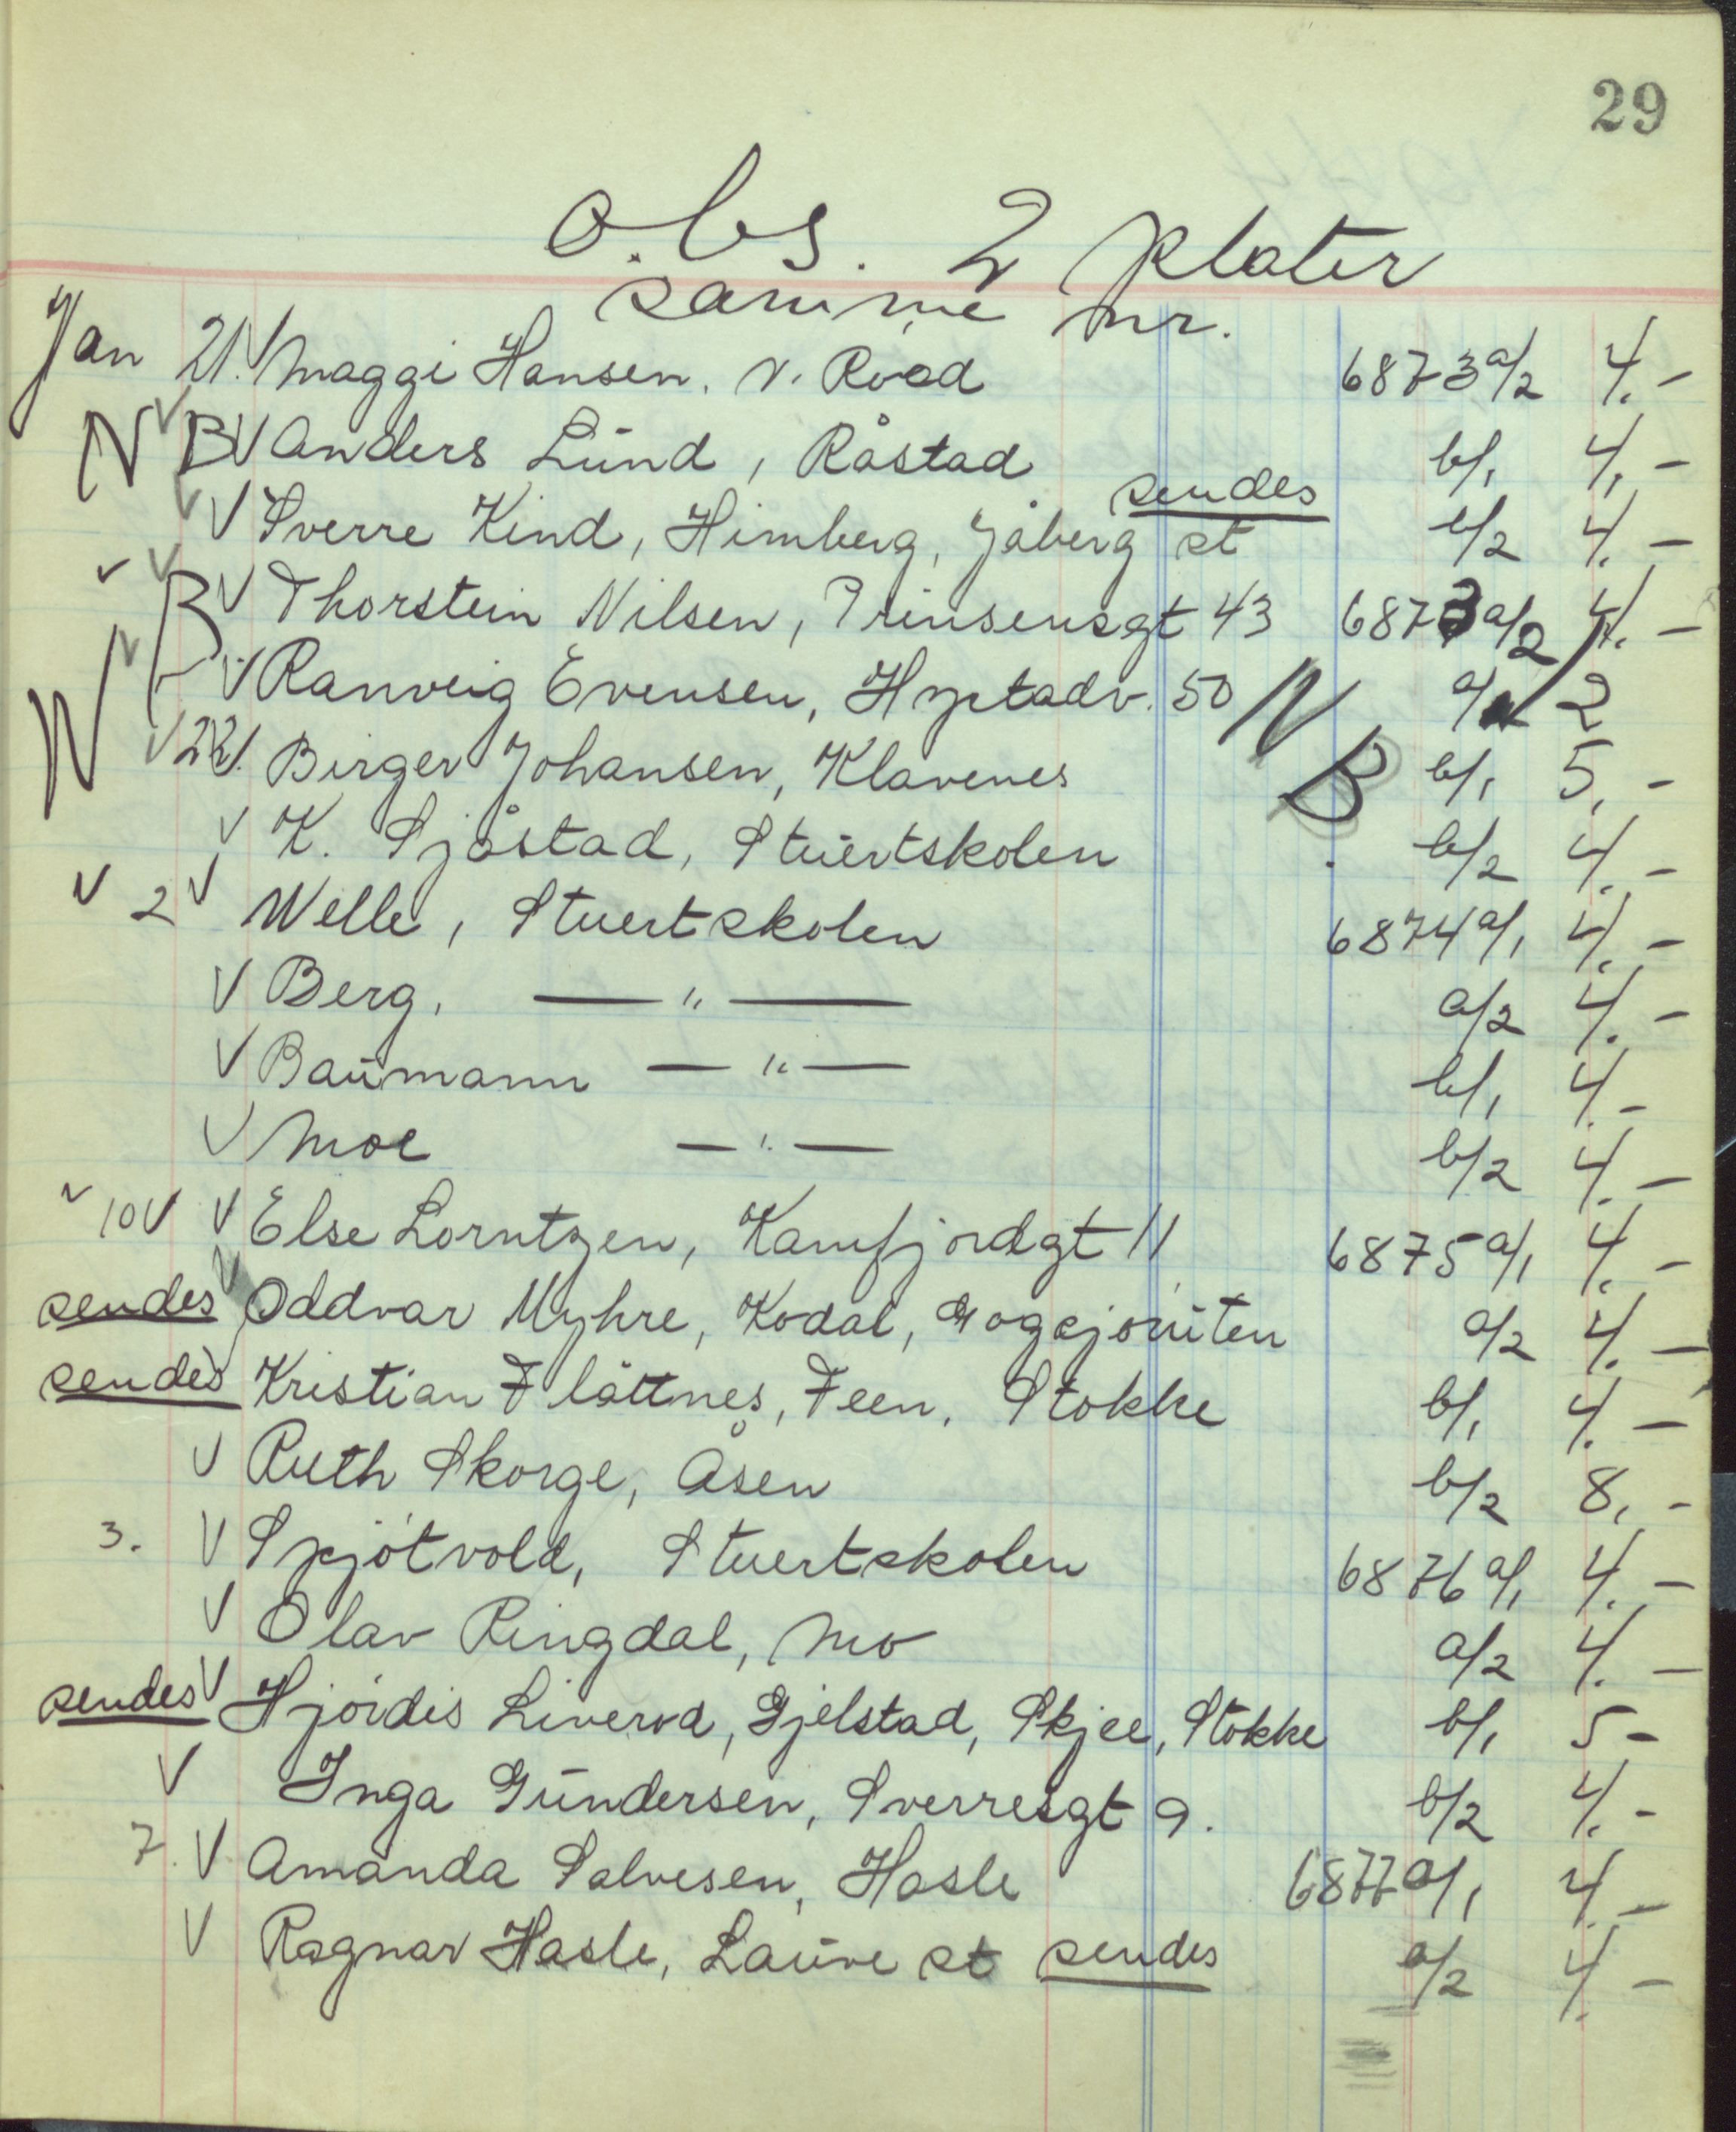 29
O.bs. 2 plater
samme nr.
Jan 21. V Maggi Hansen, V. Roed 6873 a/2 4.-
NB V Anders Lund, Råstad b/1 4,-
V Sverre Kind, Himberg, Jåberg st sendes b/2 4.-
B V Thorstein Nilsen, Prinsensgt 43 6873 a/2 4.-
N V Ranveig Evensen, 50 NB a/ 2
V 22. V Birger Johansen, Klavenes b/1 5,-
V K. Sjåstad, Stuertskolen b/2 4.-
V 2 V Welle, Stuertskolen 6874 a/1 4.-
V Berg, — " — a/2 4.-
V Baumann — " — b/1 4.-
V Moe — " — b/2 4.-
V 10 V V Else Lorntzen, Kamfjordgt 11 6875 a/1 4.-
sendes V Oddvar Myhre, Kodal, a/2 4.-
sendes Kristian Flåttnes, Feen, Stokke b/1 4.-
V Ruth Skorge, Åsen b/2 8,-
3. V Spjötvold, Stuertskolen 6876 a/1 4.-
V Olav Ringdal, Mo a/2 4.-
sendes V Hjördis Liverød, Gjelstad, Skjee, Stokke b/1 5-
V Inga Gundersen, Sverresgt 9. b/2 4.-
7. V Amanda Salvesen, Hasle 6877 a/1 4.-
V Ragnar Hasle, Lauve st sendes a/2 4.-